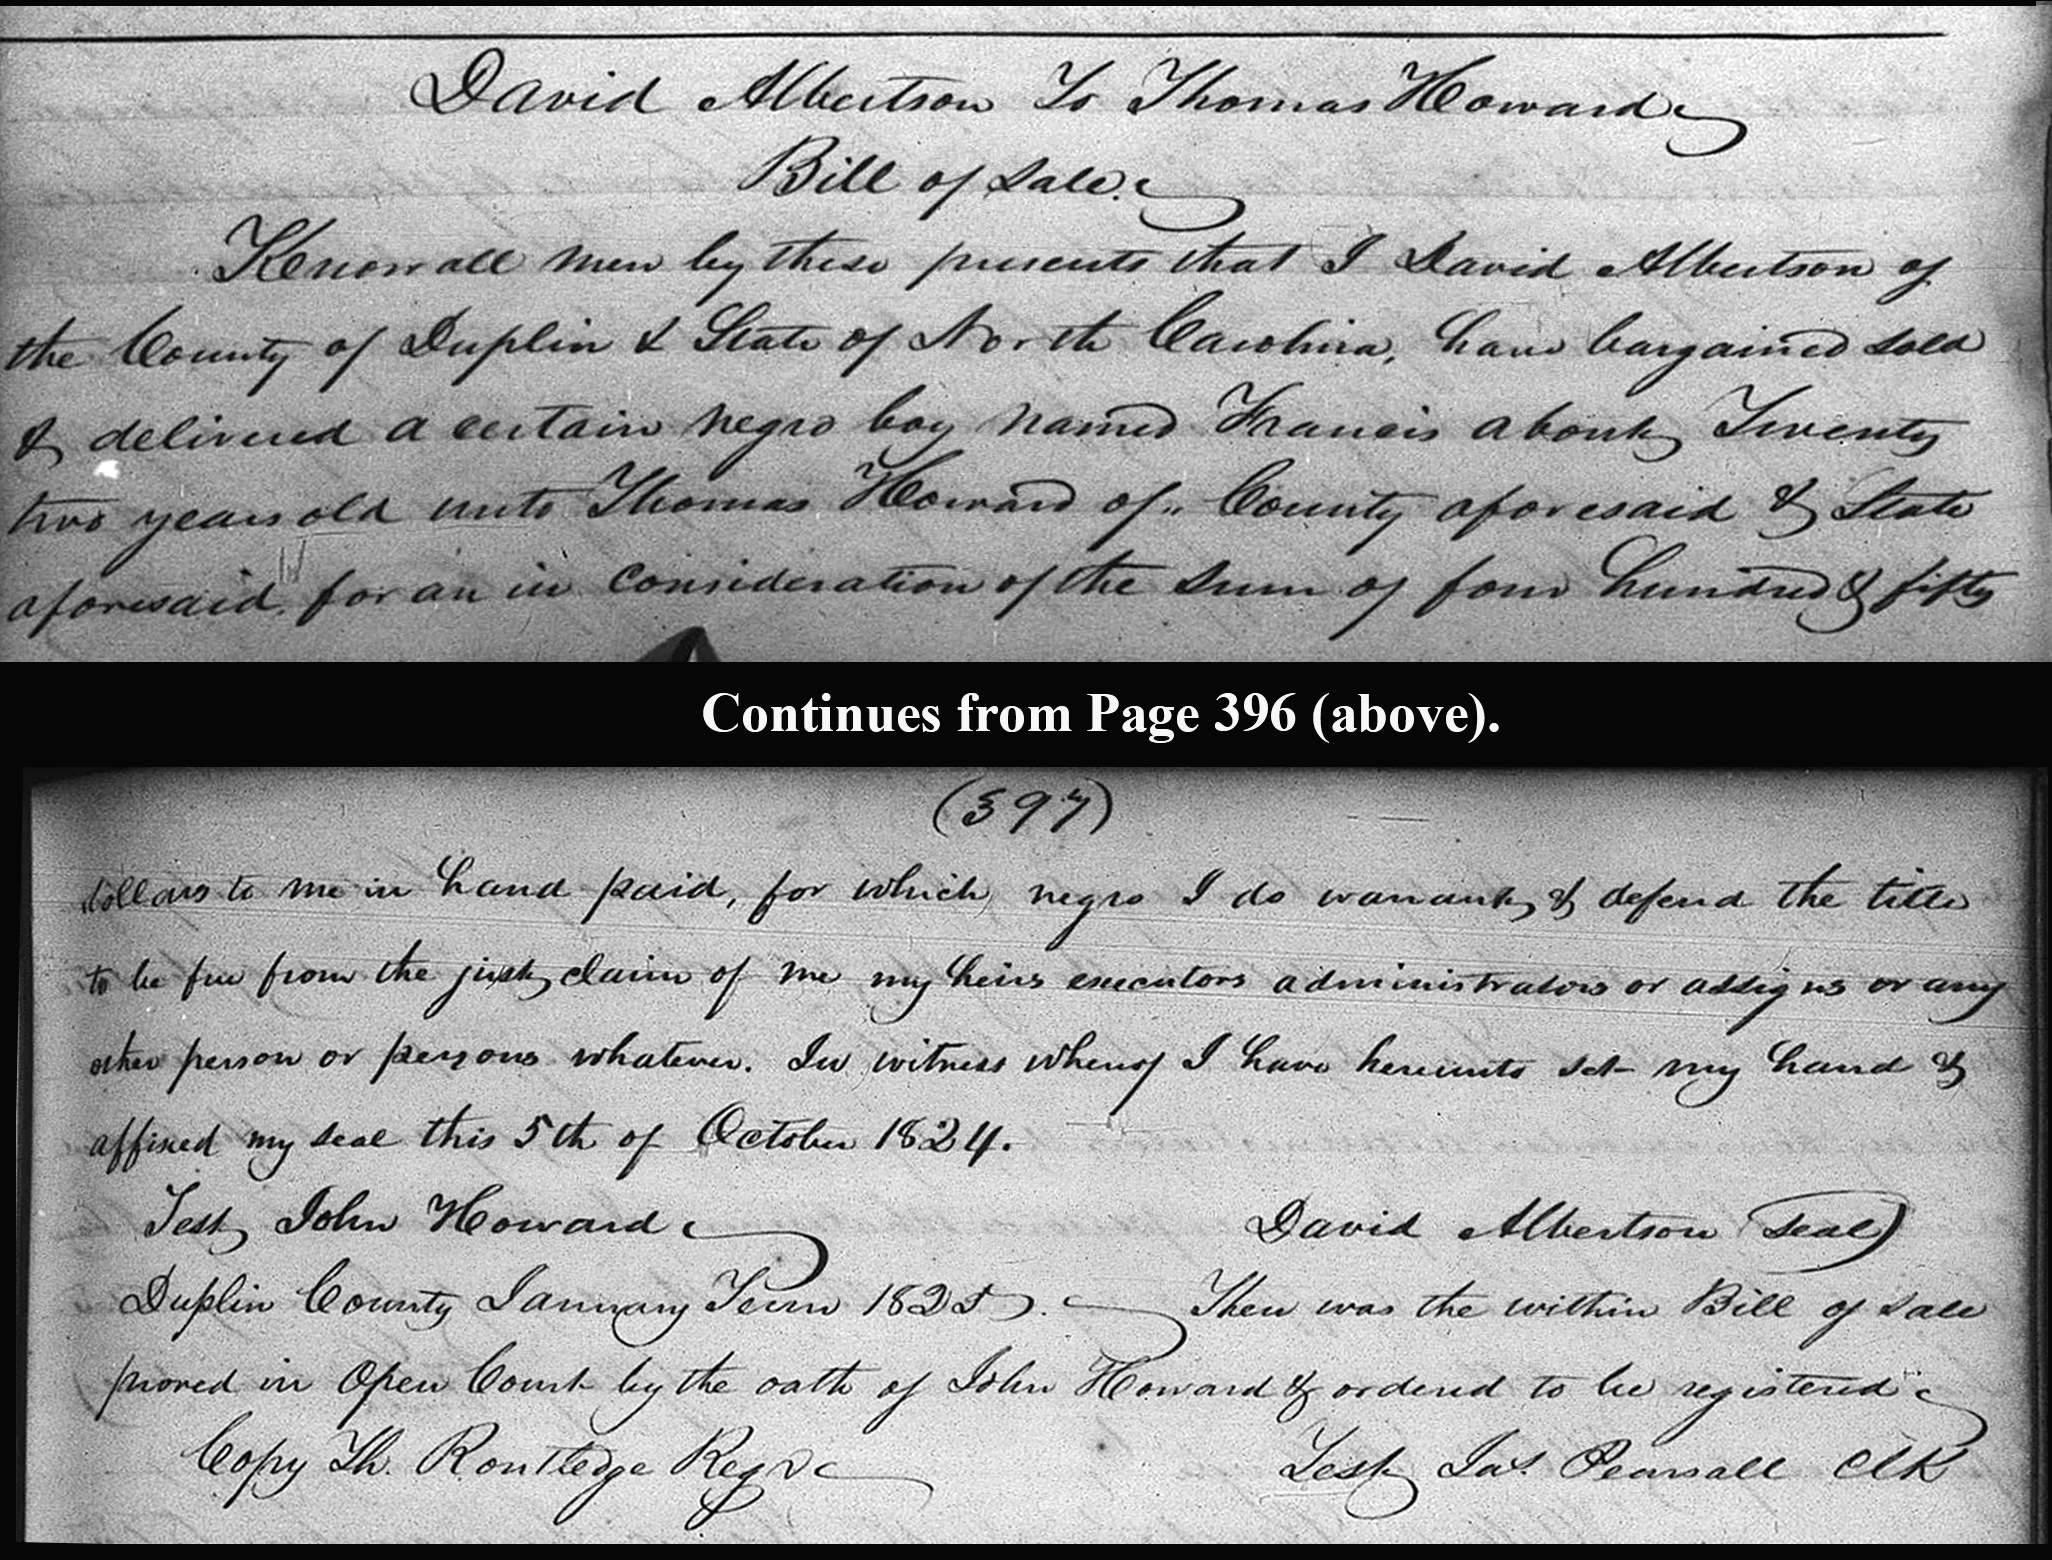 David Albertson To Thomas Howard
Bill of Sale.
Know all men by these presents that I David Albertson of
the County of Duplin & State of North Carolina, have bargained sold
& delivered a certain negro boy named Francis about Twenty
two years old unto Thomas Howard of County aforesaid & State
aforesaid, for an in consideration of the sum of four hundred & fifty
Continues from Page 396 (above).
(397)
dollars to me in hand paid, for which negro I do warrant & defend the title
to be free from the just claim of me my heirs executors administrators or assigns or any
other person or persons whatever. In witness whereof I have hereunto set my hand &
affixed my seal this 5th of October 1824.
Test John Howard David Albertson (Seal)
Duplin County January Term 1825. Then was the within Bill of Sale
proved in Open Court by the oath of John Howard & ordered to be registered
Copy Th. Routledge Regr Test Jas. Pearsall Clk